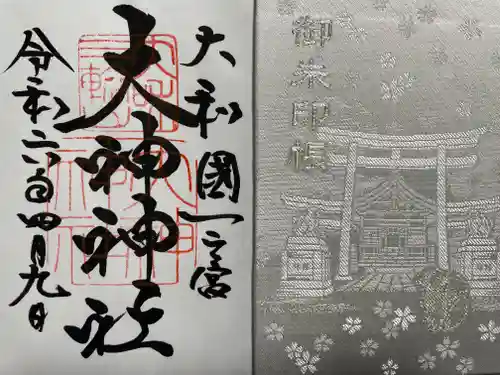 大和國一之宮
大神神社
令和六年四月九日
御朱印帳